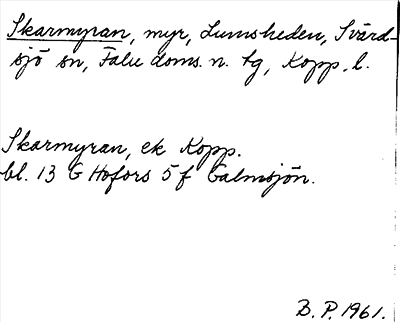 Skarmyran, myr, Lumsheden, Svärd-
sjö sn, Falu doms. n. tg, Kopp. l.
Skarmyran, ek Kopp.
bl. 13 G Hofors 5 f Galmsjön.
B. P. 1961.